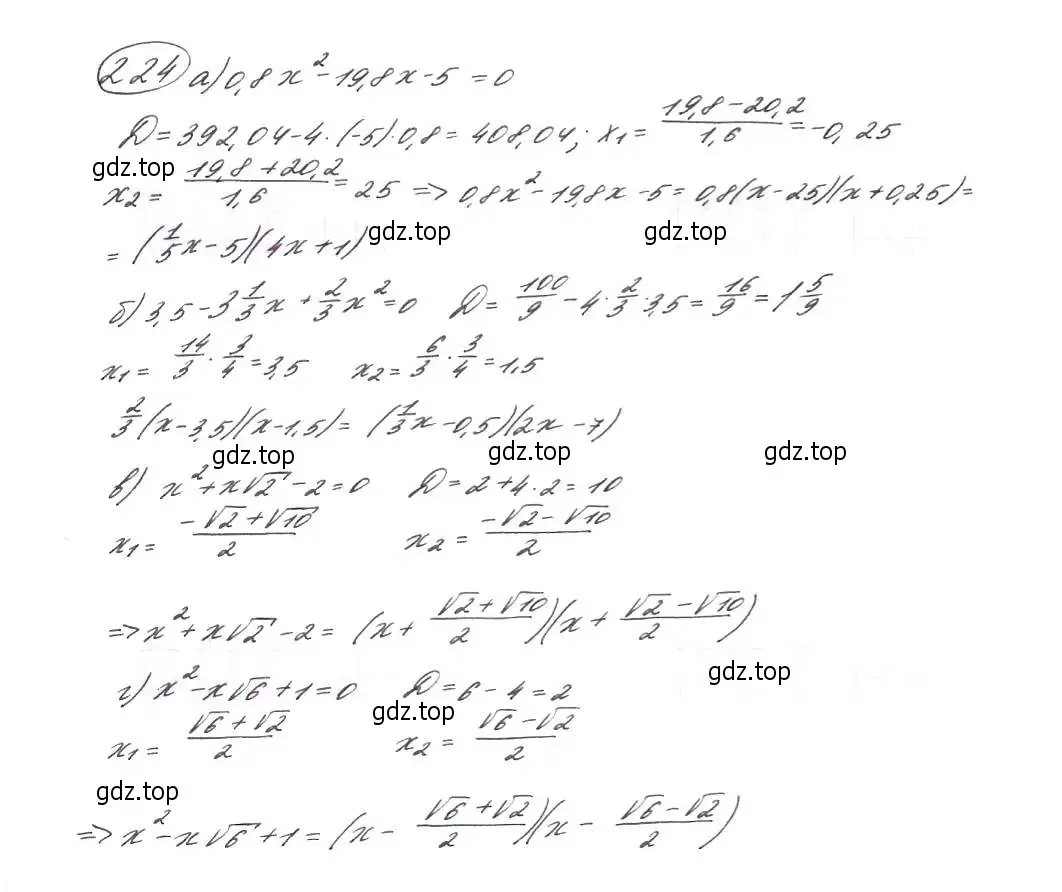 224 а) 0,8x² - 19,8x - 5 = 0
D = 392,04 - 4 · (-5) · 0,8 = 408,04; x₁ = (19,8 - 20,2)/1,6 = -0,25
gdz.top
x₂ = (19,8 + 20,2)/1,6 = 25 => 0,8x² - 19,8x - 5 = 0,8(x - 25)(x + 0,25) =
= (1/5x - 5)(4x + 1) gdz.top gdz.top
б) 3,5 - 3 1/3x + 2/3x² = 0 D = 100/9 - 4 · 2/3 · 3,5 = 16/9 = 1 5/9
x₁ = 14/3 · 3/4 = 3,5 x₂ = 6/3 · 3/4 = 1,5
2/3(x - 3,5)(x - 1,5) = (1/3x - 0,5)(2x - 7)
gdz.top gdz.top gdz.top
в) x² + x√2 - 2 = 0 D = 2 + 4 · 2 = 10
x₁ = (-√2 + √10)/2 x₂ = (-√2 - √10)/2
=> x² + x√2 - 2 = (x + (√2 + √10)/2)(x + (√2 - √10)/2)
gdz.top
г) x² - x√6 + 1 = 0 D = 6 - 4 = 2
gdz.top
x₁ = (√6 + √2)/2 x₂ = (√6 - √2)/2
gdz.top
=> x² - x√6 + 1 = (x - (√6 + √2)/2)(x - (√6 - √2)/2)